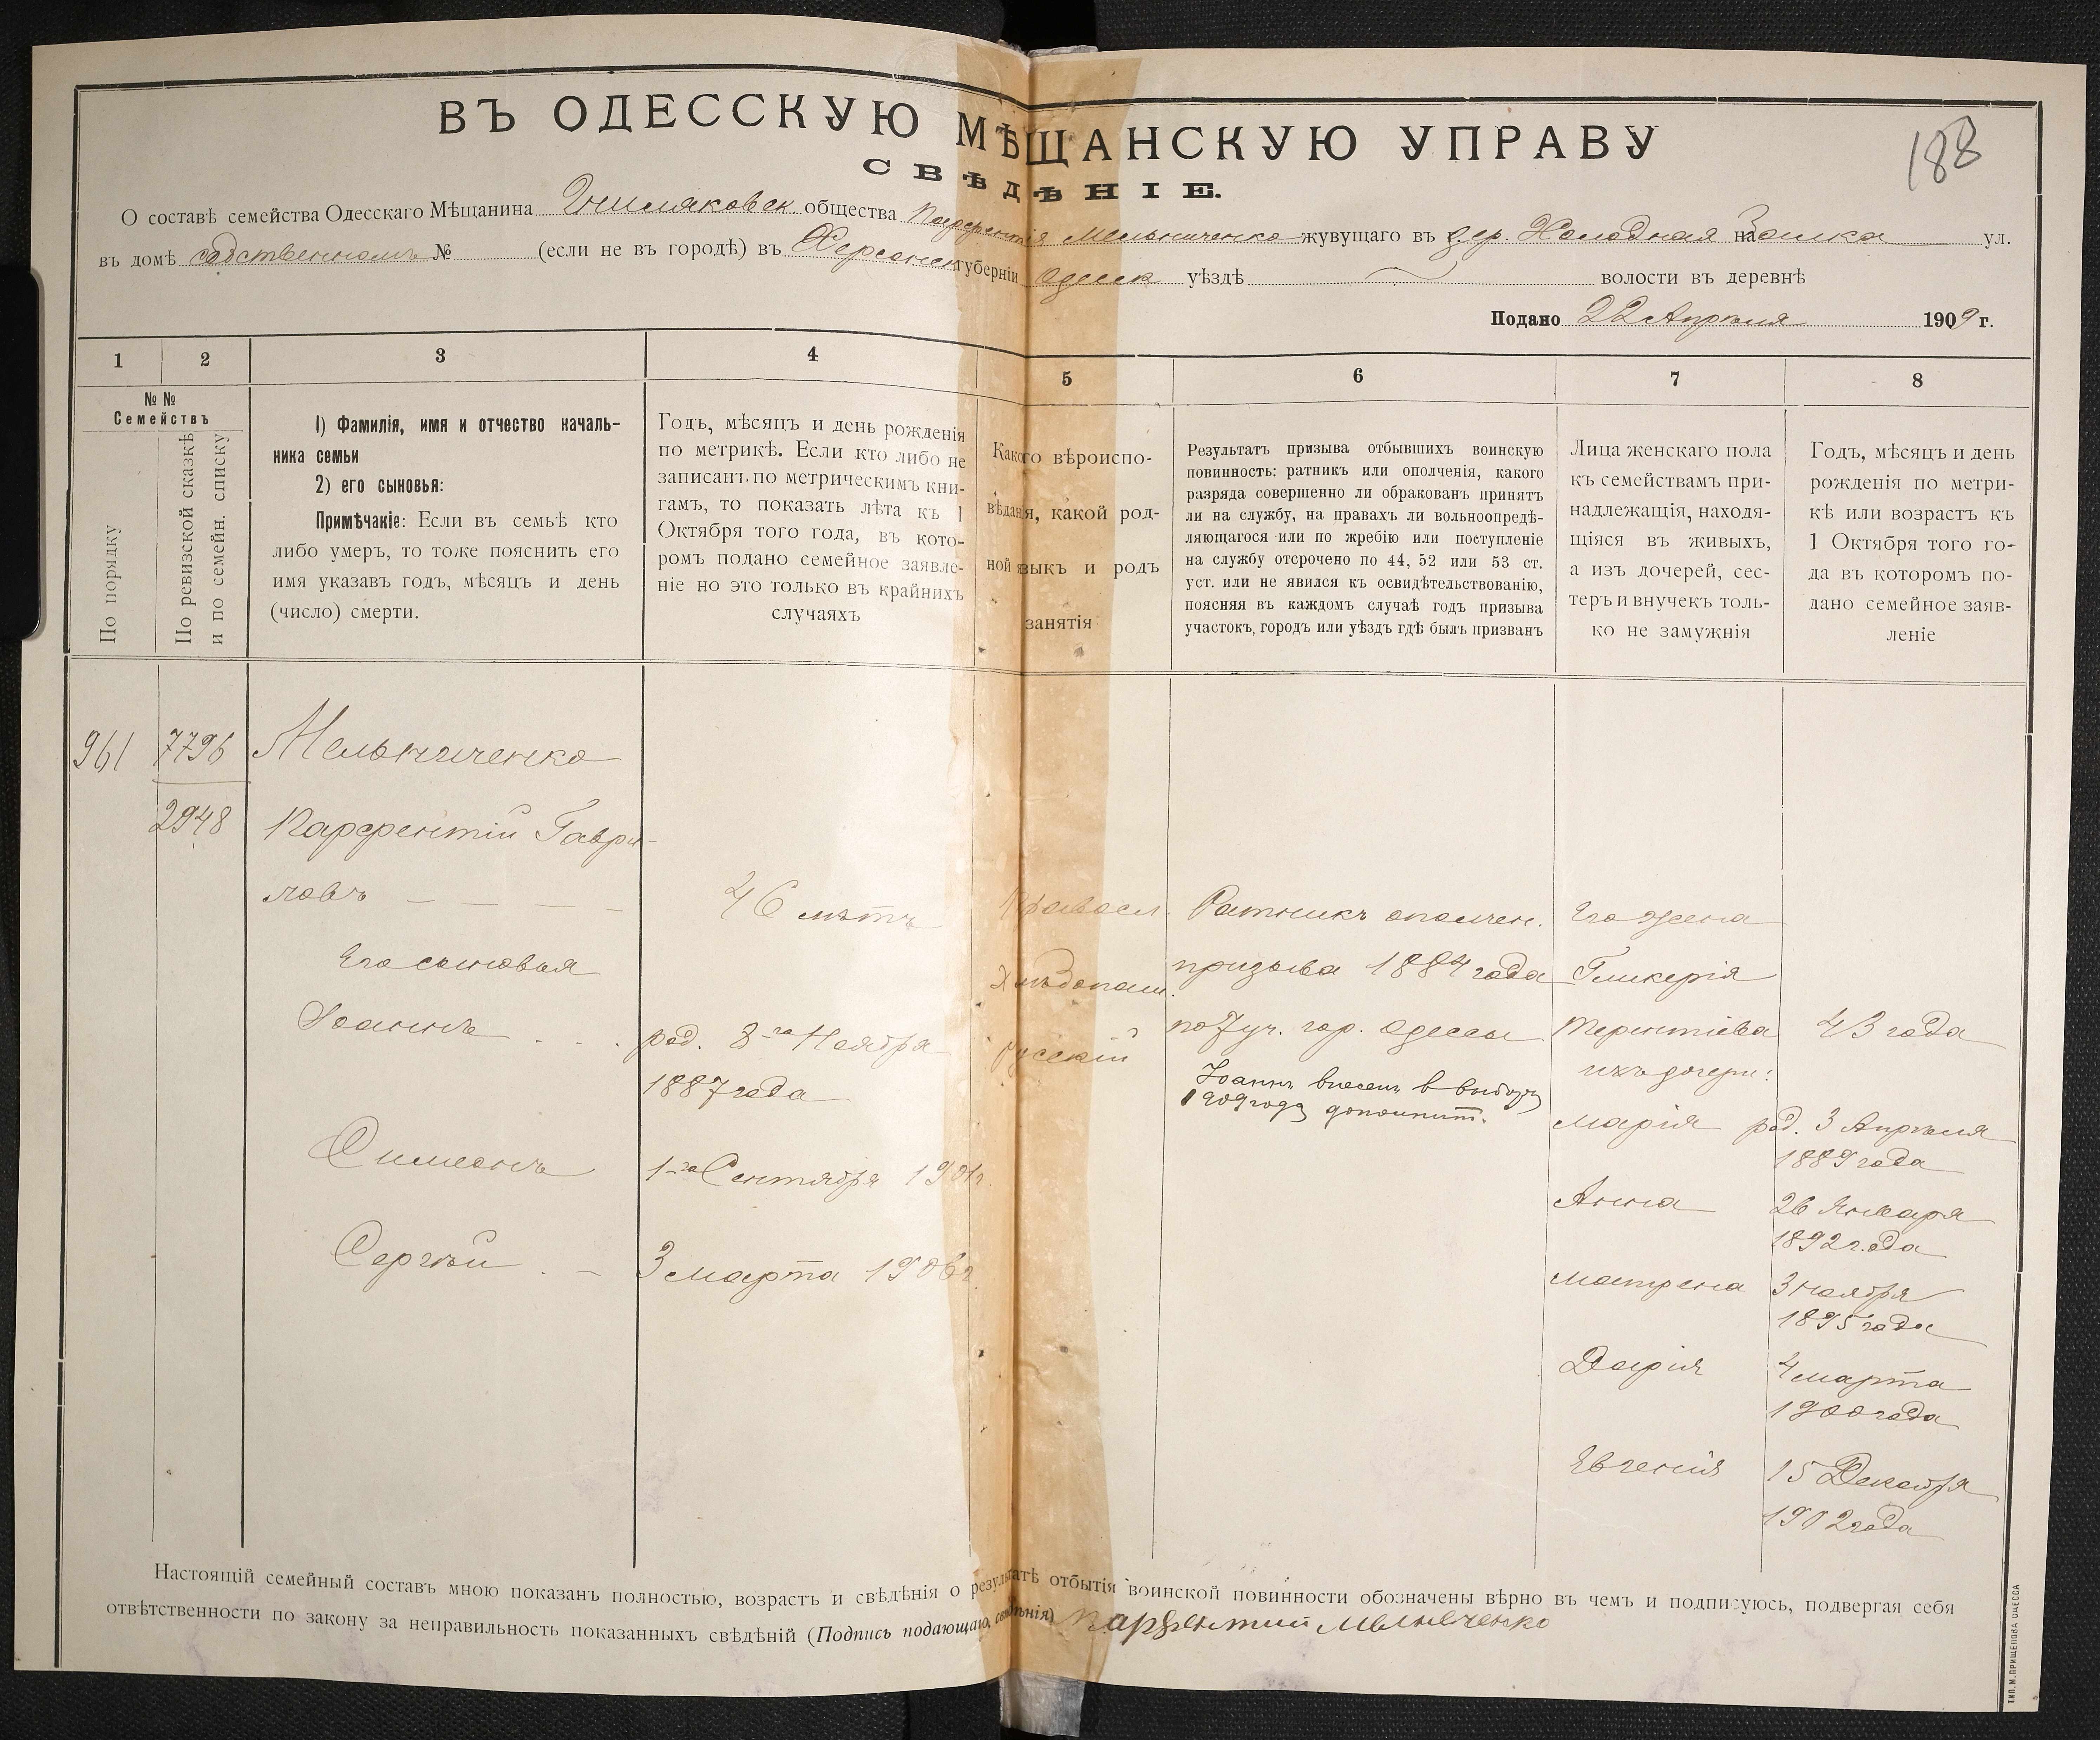 188
ВЪ ОДЕССКУЮ МѢЩАНСКУЮ УПРАВУ
СВѢДѢНІЕ.
О составѣ семейства Одесскаго Мѣщанина Гниляковск. общества Парфентія Мельниченко жувущаго въ дер. Холодная на Балка ул.
въ домѣ собственномъ № (если не въ городѣ) въ Херсонск губерніи Одесск уѣздѣ волости въ деревнѣ
Подано 22 Апрѣля 1909 г.
1 2 3 4 5 6 7 8
№ №
Семействъ
По порядку
По ревизской сказкѣ
и по семейн. списку
1) Фамилія, имя и отчество началь-
ника семьи
2) его сыновья:
Примѣчаніе: Если въ семьѣ кто
либо умеръ, то тоже пояснить его
имя указавъ годъ, мѣсяцъ и день
(число) смерти.
Годъ, мѣсяцъ и день рожденія
по метрикѣ. Если кто либо не
записанъ по метрическимъ кни-
гамъ, то показать лѣта къ 1
Октября того года, въ кото-
ромъ подано семейное заявле-
ніе но это только въ крайнихъ
случаяхъ
Какого вѣроиспо-
вѣданія, какой род-
ной языкъ и родъ
занятія
Результатъ призыва отбывшихъ воинскую
повинность: ратникъ или ополченія, какого
разряда совершенно ли обракованъ принятъ
ли на службу, на правахъ ли вольноопредѣ-
ляющагося или по жребію или поступленіе
на службу отсрочено по 44, 52 или 53 ст.
уст. или не явился къ освидѣтельствованію,
поясняя въ каждомъ случаѣ годъ призыва
участокъ, городъ или уѣздъ гдѣ былъ призванъ
Лица женскаго пола
къ семействамъ при-
надлежащія, находя-
щіяся въ живыхъ,
а изъ дочерей, сес-
теръ и внучекъ толь-
ко не замужнія
Годъ, мѣсяцъ и день
рожденія по метри-
кѣ или возрастъ къ
1 Октября того го-
да въ которомъ по-
дано семейное заяв-
леніе
961
7796
2948
Мельниченко
Парфентій Гаври-
ловъ
Его сыновья
Іоаннъ
Симеонъ
Сергѣй
46 лѣтъ
род. 8-го Ноября
1887 года
1-го Сентября 1901г.
3 марта 1906г
Правосл.
Хлѣбопаш.
русскій
Ратникъ ополчен.
призыва 1884 года
по 7 уч. гор. Одессы
Іоаннъ внесен в выборъ
1909 года дополнит.
Его жена
Гликерія
Терентіева
ихъ дочери:
Марія
Анна
Матрена
Дарія
Евгенія
43 года
род. 3 Апрѣля
1889 года
26 Января
1892 года
3 ноября
1895 года
4 марта
1900 года
15 Декабря
1902 года
Настоящій семейный составъ мною показанъ полностью, возрастъ и свѣдѣнія о результатѣ отбытія воинской повинности обозначены вѣрно въ чемъ и подписуюсь, подвергая себя
отвѣтственности по закону за неправильность показанныхъ свѣдѣній (Подпись подающаго, свѣдѣнія) Парфентий Мелниченко
ТИП. М. ПРИЩЕПОВА ОДЕССА